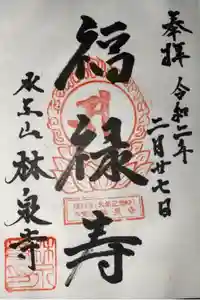 奉拝
令和二年
二月廿七日
福禄寿
林泉寺